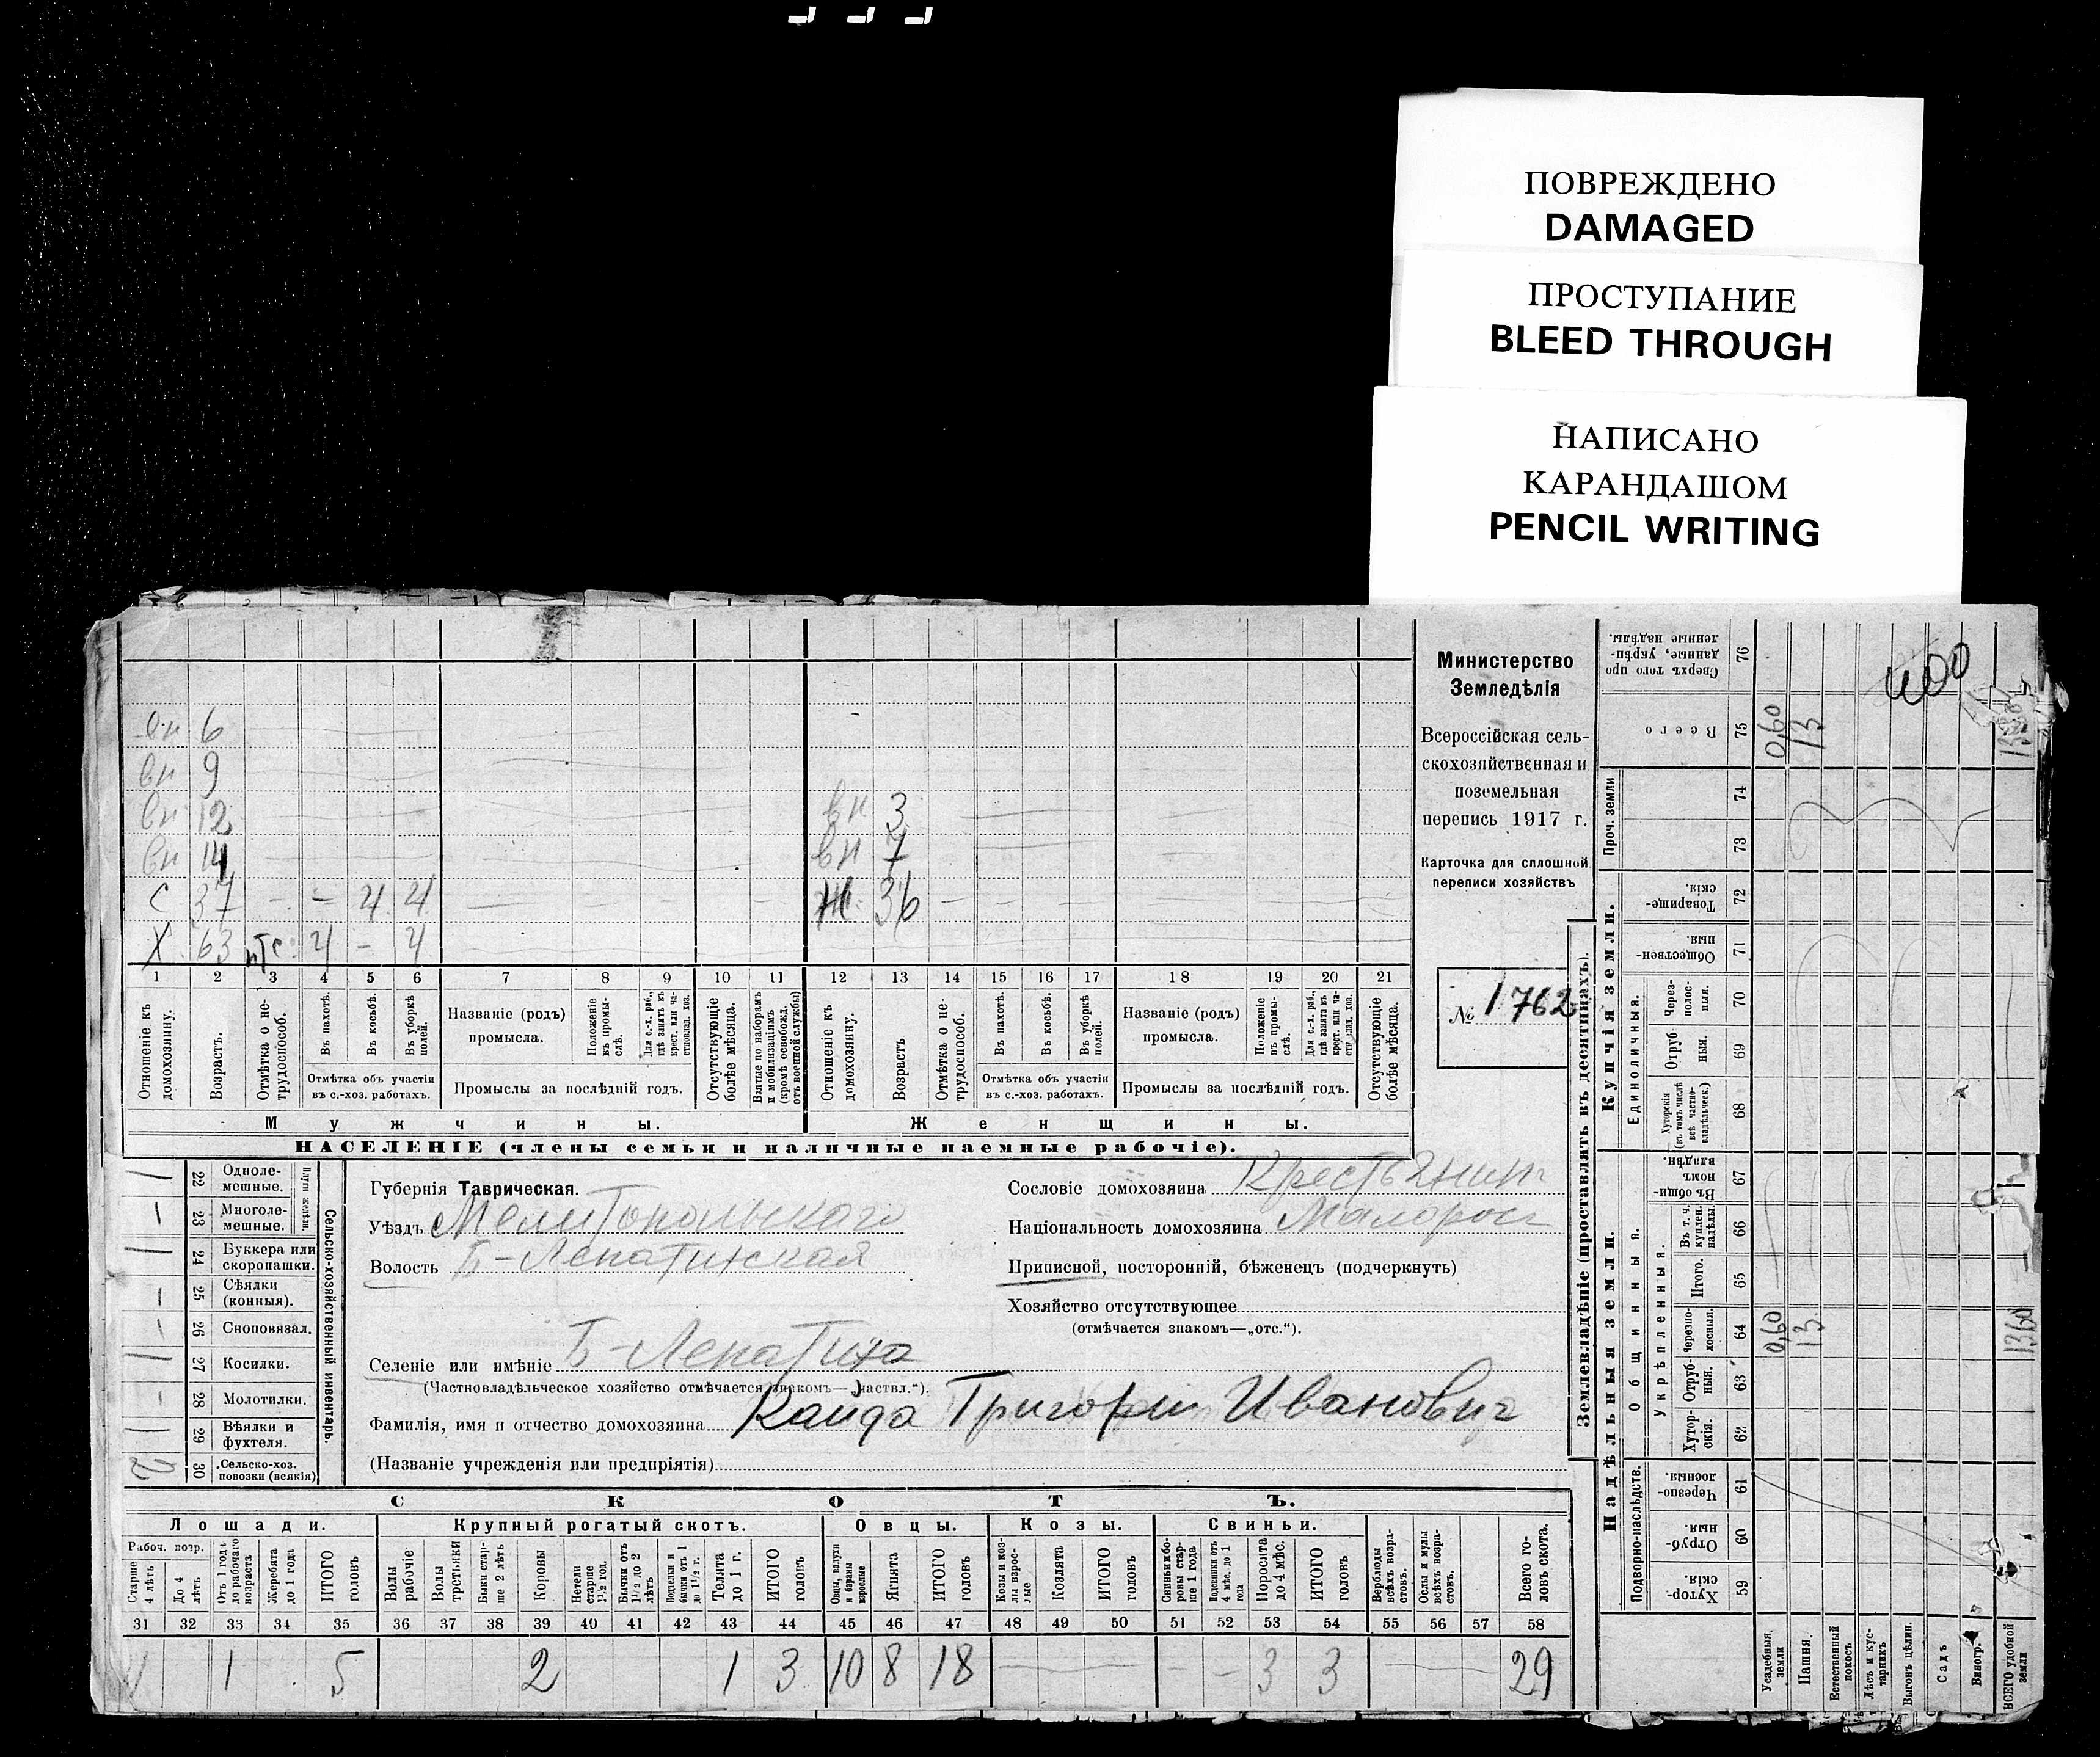 ПОВРЕЖДЕНО
DAMAGED
ПРОСТУПАНИЕ
BLEED THROUGH
НАПИСАНО
КАРАНДАШОМ
PENCIL WRITING
вн 6
вн 9
вн 12 вн 3
вн 14 вн 7
с 37 - - ч ч ж 36
х 63 птс ч - ч
1 2 3 4 5 6 7 8 9 10 11 12 13 14 15 16 17 18 19 20 21
Отношеніе къ домохозяину.
Возрастъ.
Отмѣтка о нетрудоспособ.
Въ пахотѣ.
Въ косьбѣ.
Въ уборкѣ полей.
Отмѣтка объ участіи въ с.-хоз. работахъ.
Названіе (родъ) промысла.
Положеніе въ промыслѣ.
Для с.-х. раб., гдѣ занятъ въ крест. или частновлад. хоз.
Промыслы за послѣдній годъ.
Отсутствующіе болѣе мѣсяца.
Взятые по наборамъ и мобилизаціямъ (кромѣ освобожд. отъ военной службы)
Отношеніе къ домохозяину.
Возрастъ
Отмѣтка о нетрудоспособ.
Въ пахотѣ.
Въ косьбѣ.
Въ уборкѣ полей.
Отмѣтка объ участіи въ с.-хоз. работахъ.
Названіе (родъ) промысла.
Положеніе въ промыслѣ.
Для с.-х. раб., гдѣ занятъ въ крест. или частновлад. хоз.
Промыслы за послѣдній годъ.
Отсутствующіе болѣе мѣсяца.
Мужчины. Женщины.
НАСЕЛЕНІЕ (члены семьи и наличные наемные рабочіе).
Министерство
Земледѣлія
Всероссійская сель-
скохозяйственная и
поземельная
перепись 1917 г.
Карточка для сплошной
переписи хозяйствъ
№ 1762
22 Однолемешные.
23 Многолемешные.
Плуги желѣзн.
24 Буккера или скоропашки.
25 Сѣялки (конныя).
26 Сноповязал.
27 Косилки.
28 Молотилки.
29 Вѣялки и фухтеля.
30 Сельско-хоз. повозки (всякія)
2
Сельско-хозяйственный инвентарь.
Губернія Таврическая.
Уѣздъ Мелитопольскаго
Волость Б-Лепатихская
Селеніе или имѣніе Б-Лепатиха
(Частновладѣльческое хозяйство отмѣчается знакомъ—„частвл.“).
Фамилія, имя и отчество домохозяина Кайда Григори Иванович
(Названіе учрежденія или предпріятія)
Сословіе домохозяина Крестьянин
Національность домохозяина Малорос
Приписной, посторонній, бѣженец (подчеркнуть)
Хозяйство отсутствующее
(отмѣчается знакомъ—„отс.“).
СКОТЪ.
Лошади. Крупный рогатый скотъ. Овцы. Козы. Свиньи.
Рабоч. возр.
Старше 4 лѣтъ
До 4 лѣтъ
Отъ 1 года до рабочаго возраста
Жеребята до 1 года
ИТОГО головъ
Волы рабочіе
Волы третьяки
Быки старше 2 лѣтъ
Коровы
Нетели старше 1½ год.
Бычки отъ 1½ до 2 лѣтъ
Подтелки и бычки отъ 1 до 1½ г.
Телята до 1 г.
ИТОГО головъ
Овцы, валухи и бараны взрослые
Ягнята
ИТОГО головъ
Козы и козлы взрослые
Козлята
ИТОГО головъ
Свиньи и боровы старше 1 года
Подсвинки отъ 4 мѣс. до 1 года
Поросята до 4 мѣс.
ИТОГО головъ
Верблюды всѣхъ возрастовъ.
Ослы и мулы всѣхъ возрастовъ.
Всего головъ скота.
31 32 33 34 35 36 37 38 39 40 41 42 43 44 45 46 47 48 49 50 51 52 53 54 55 56 57 58
4 1 5 2 1 3 10 8 18 - - 3 3 29
Землевладѣніе (проставлять въ десятинахъ).
Сверхъ того проданные, укрѣпленные надѣлы. 76
400
Всего 75 0,60 13
Проч. земли 74 73
Купчія земли.
Товарищескія. 72
Общественныя. 71
Единоличныя.
Черезполосныя. 70
Отрубныя. 69
Хуторскія (въ томъ числѣ всѣ частновладѣльческ.) 68
Надѣльныя земли.
Общинныя.
Въ общинномъ владѣн. 67
Укрѣпленныя.
Въ т. ч. куплен. надѣлы. 66
Итого. 65
Черезполосныя. 64 0,60 13 1360
Отрубныя. 63
Хуторскія. 62
Подворно-наслѣдств.
Черезполосныя. 61
Отрубныя. 60
Хуторскія. 59
Усадебныя земли
Пашня.
Естественный покосъ
Лѣсъ и кустарникъ
Выгонъ цѣлин.
Садъ
Виногр.
ВСЕГО удобной земли